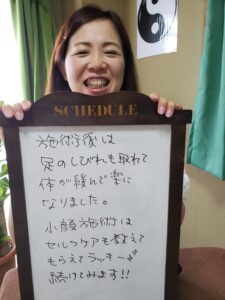 SCHEDULE
施術後は
足のしびれも取れて
体が緩んで楽に
なりました。
小顔施術は
セルフケアも教えて
もらえてラッキー
続けてみます!!